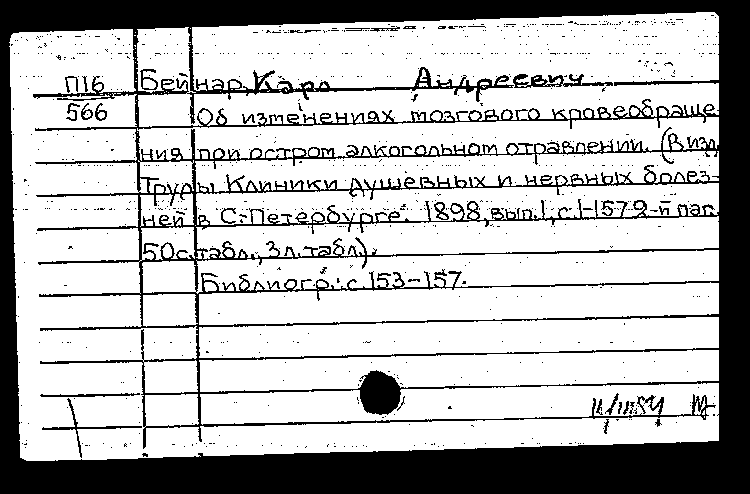 П16 Бейнар, Карл Андреевич
566 Об изменениях мозгового кровеобраще
ния при остром алкогольном отравлении. (В изд.
Труды Клиники душевных и нервных болез-
ней в С.-Петербурге. 1898, вып.1, с.1-157 2-й паг.
50с.табл., 3л.табл.).
Библиогр.: с.153-157.